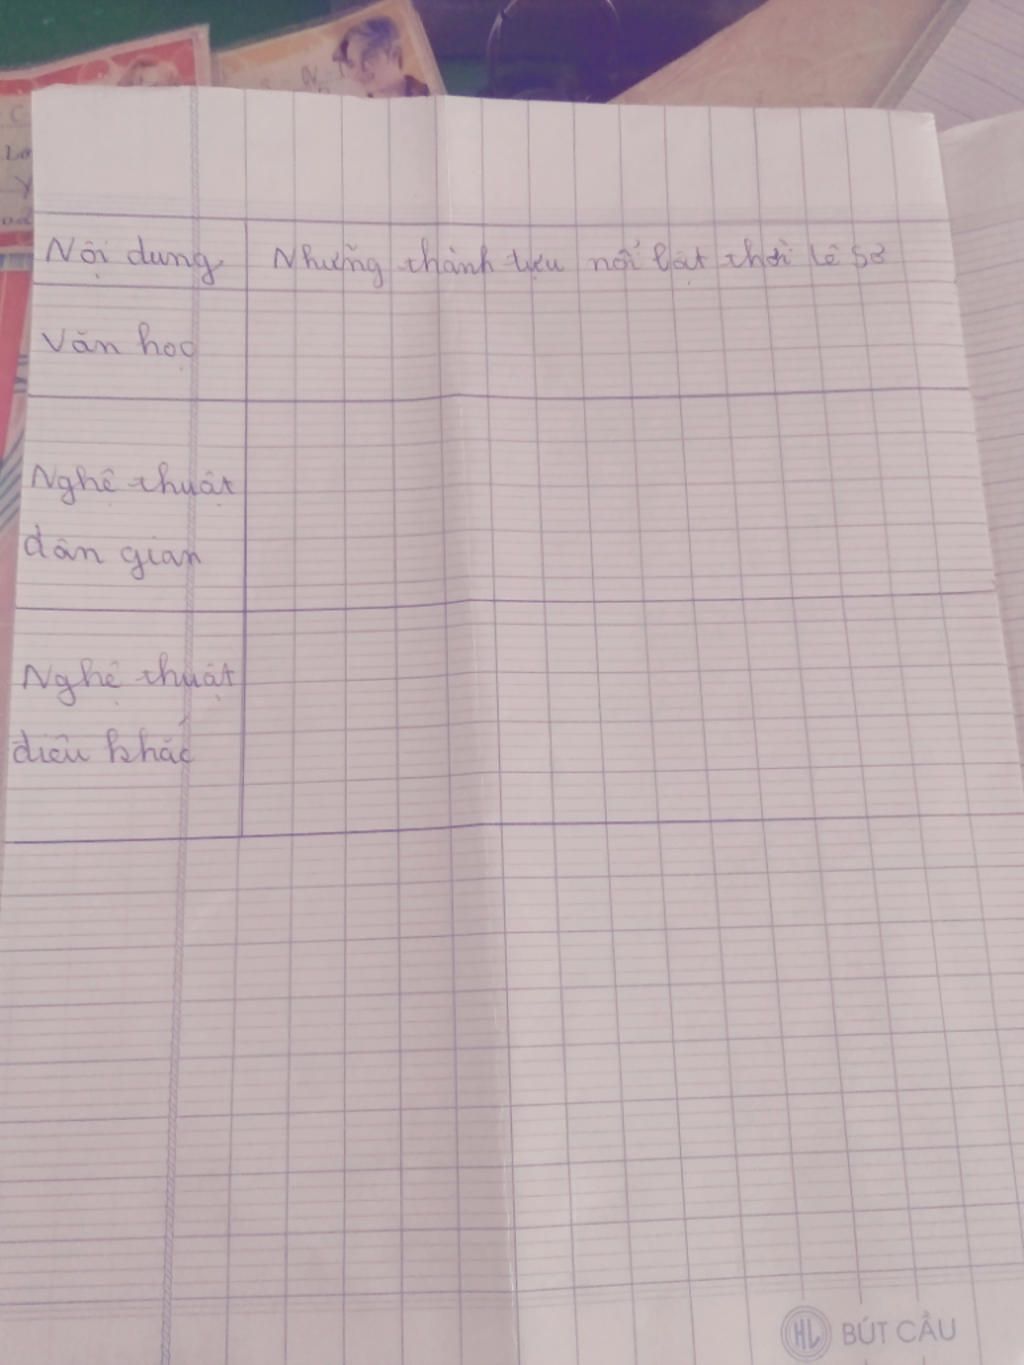 Nội dung Những thành tựu nổi bật thời Lê Sơ
Văn học
Nghệ thuật
dân gian
Nghệ thuật
điêu khắc
HL BÚT CẦU